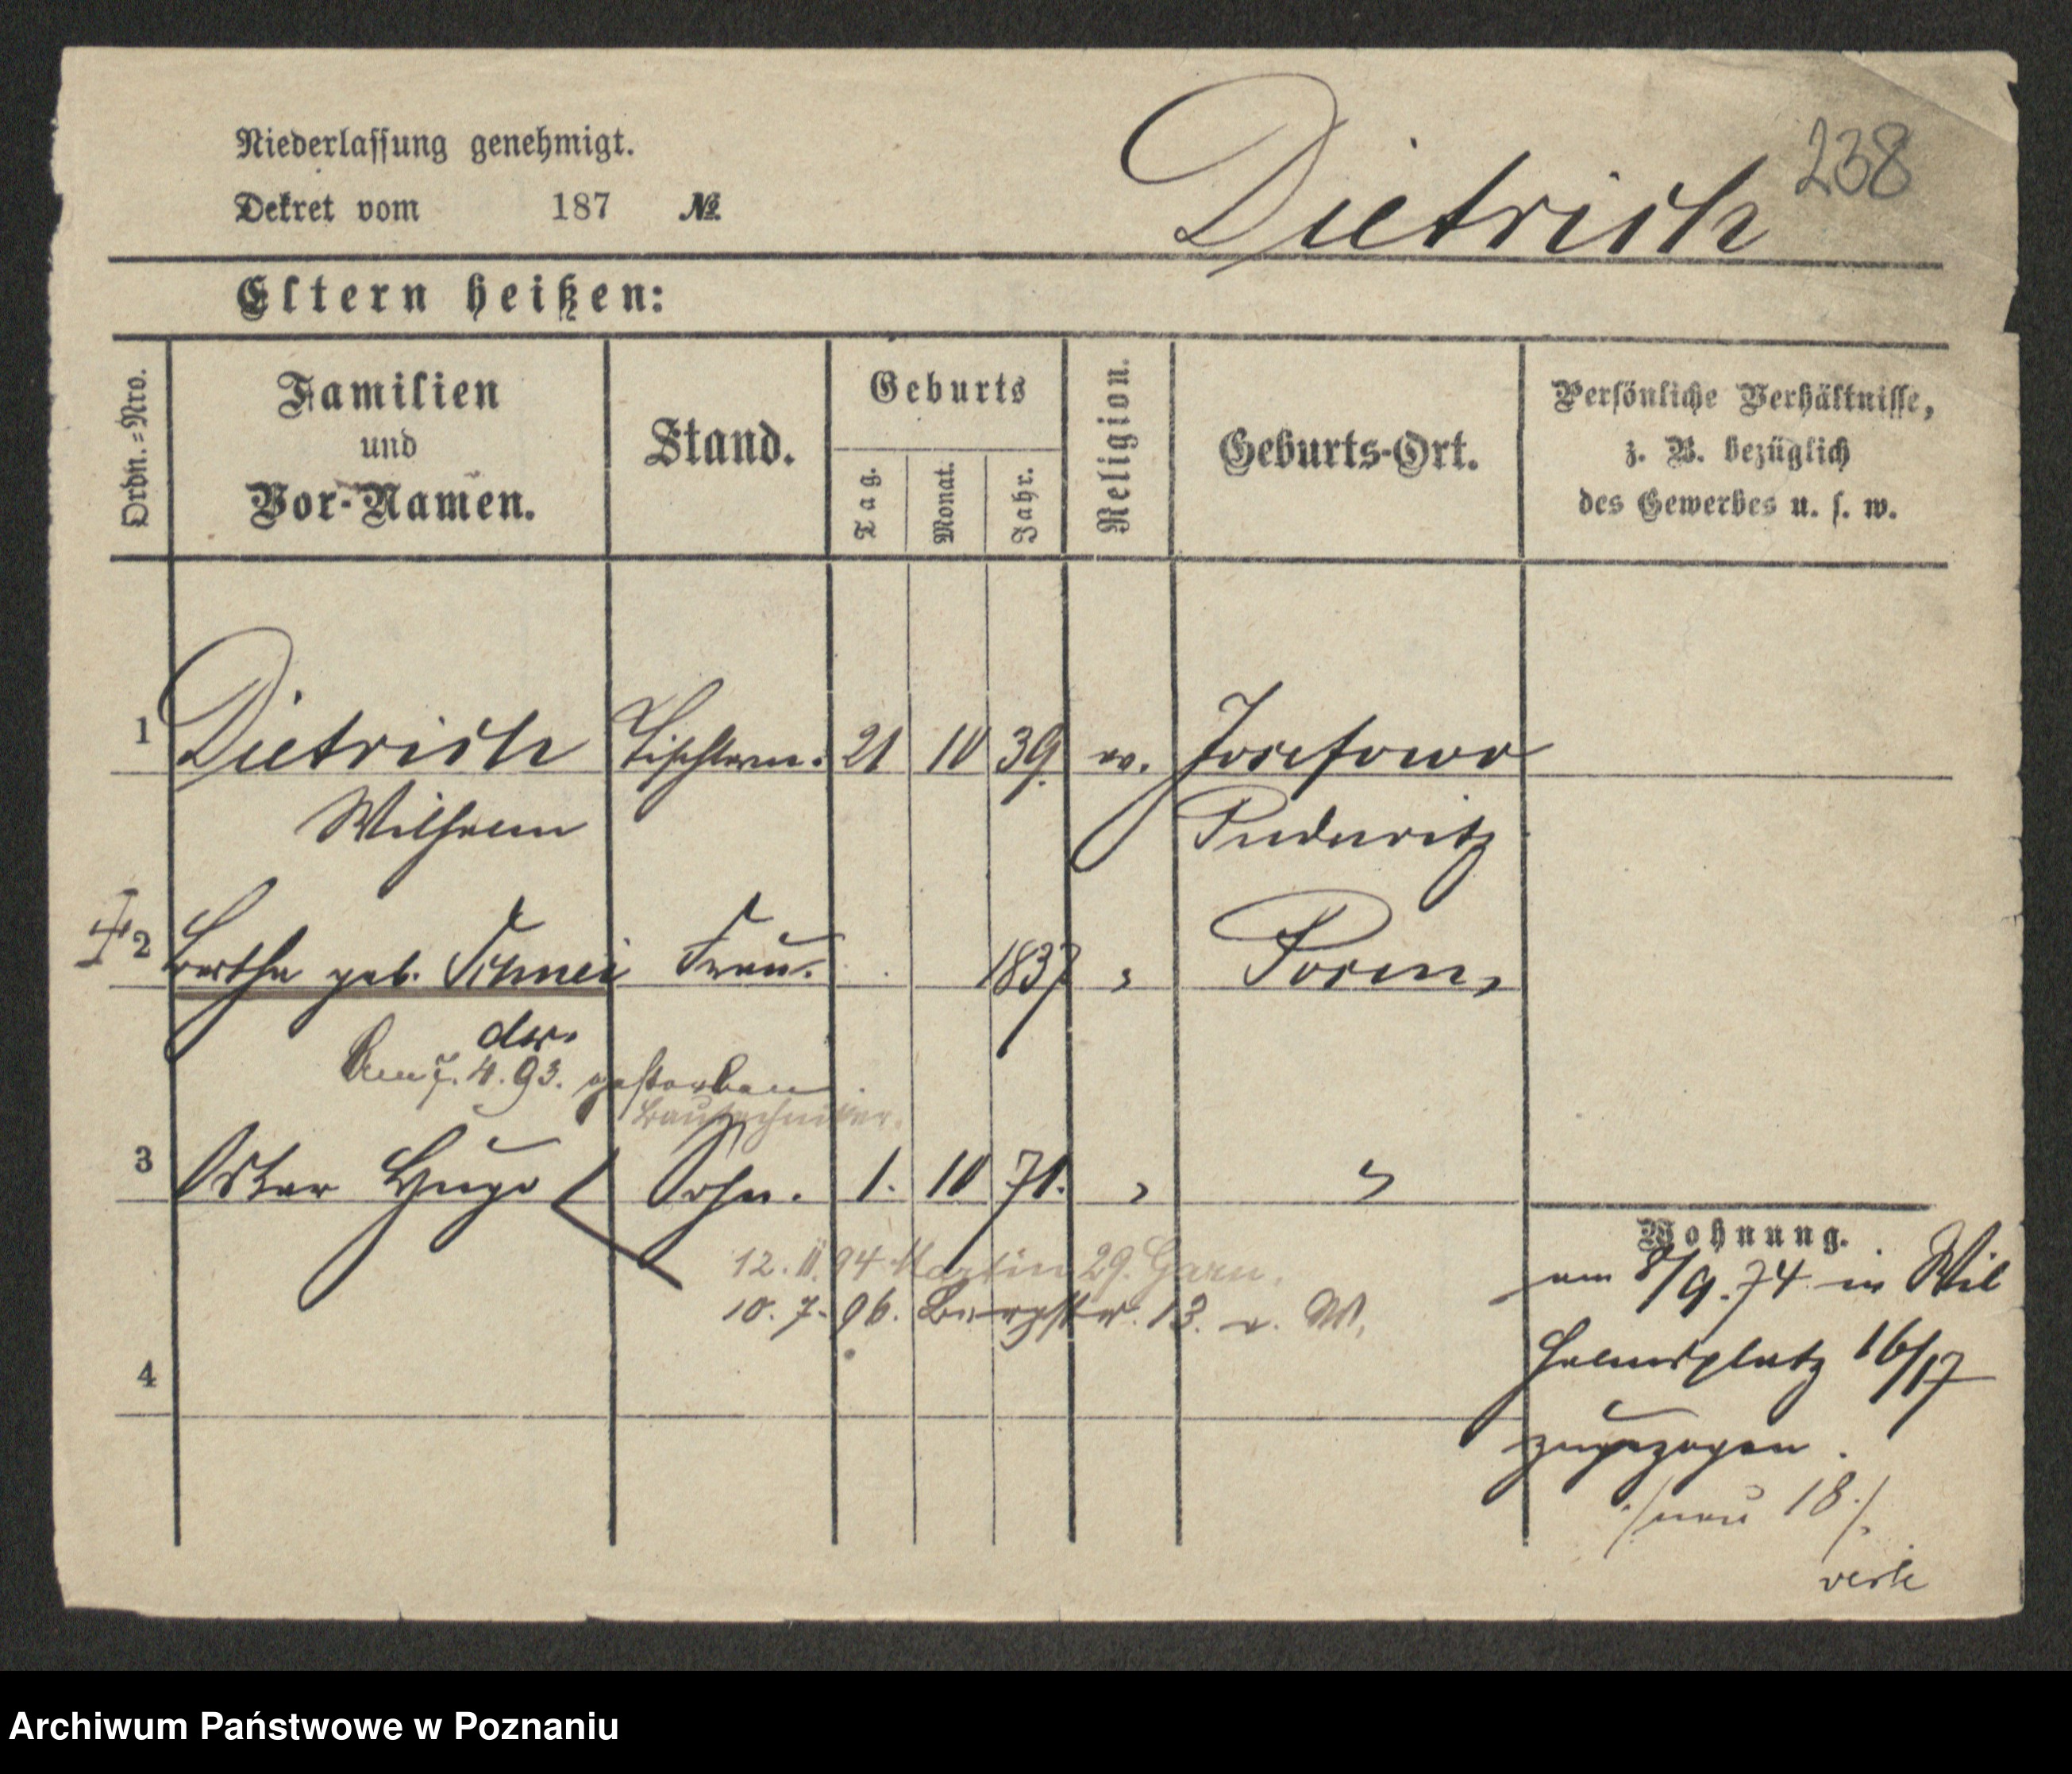 Niederlassung genehmigt.
Dekret vom 187 №
Dietrich 238
Eltern heißen:
Ordn.=Nro.
Familien
und
Vor-Namen.
Stand.
Geburts
Tag.
Monat.
Jahr.
Religion.
Geburts-Ort.
Persönliche Verhältnisse,
z. B. bezüglich
des Gewerbes u. s. w.
1 Dietrich Tischlerm. 21 10 39. ev. Josefowo
Wilhelm Pudewitz
2 Bertha geb. Schnei Frau. 1837 " Posen,
der.
Am 7. 4. 93. gestorben
Bautechniker.
3 Oskar Hugo Sohn. 1. 10 71. " "
Wohnung.
12. II. 94 Martin 29. Garn.
10. 7. 96. Bergstr. 13. v. W.
am 8/9. 74 in Wil
helmsplatz 16/17
zugezogen.
4
./neu 18./.